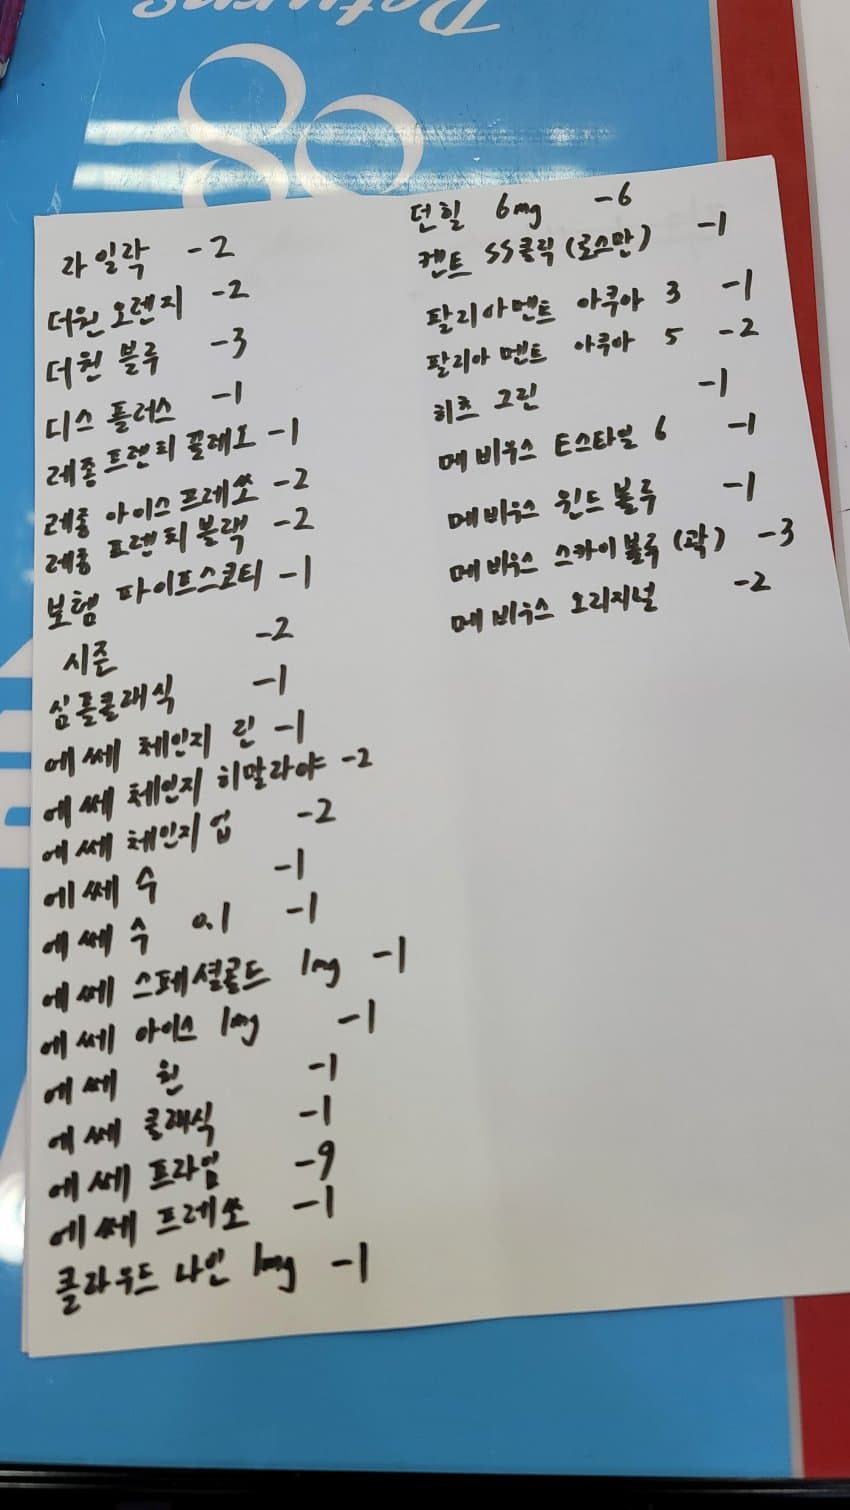 Returns
80
라일락 -2
더원 오렌지 -2
더원 블루 -3
디스 플러스 -1
레종 프렌치 끌레오 -1
레종 아이스 프레쏘 -2
레종 프렌치 블랙 -2
보헴 파이프스코티 -1
시즌 -2
심플클래식 -1
에쎄 체인지 린 -1
에쎄 체인지 히말라야 -2
에쎄 체인지 업 -2
에쎄 수 -1
에쎄 수 0.1 -1
에쎄 스페셜골드 1mg -1
에쎄 아이스 1mg -1
에쎄 원 -1
에쎄 클래식 -1
에쎄 프라임 -9
에쎄 프레쏘 -1
클라우드 나인 1mg -1
던힐 6mg -6
켄트 SS클릭 (로스만) -1
팔리아멘트 아쿠아 3 -1
팔리아멘트 아쿠아 5 -2
히츠 그린 -1
메비우스 E스타일 6 -1
메비우스 윈드 블루 -1
메비우스 스카이블루 (곽) -3
메비우스 오리지널 -2